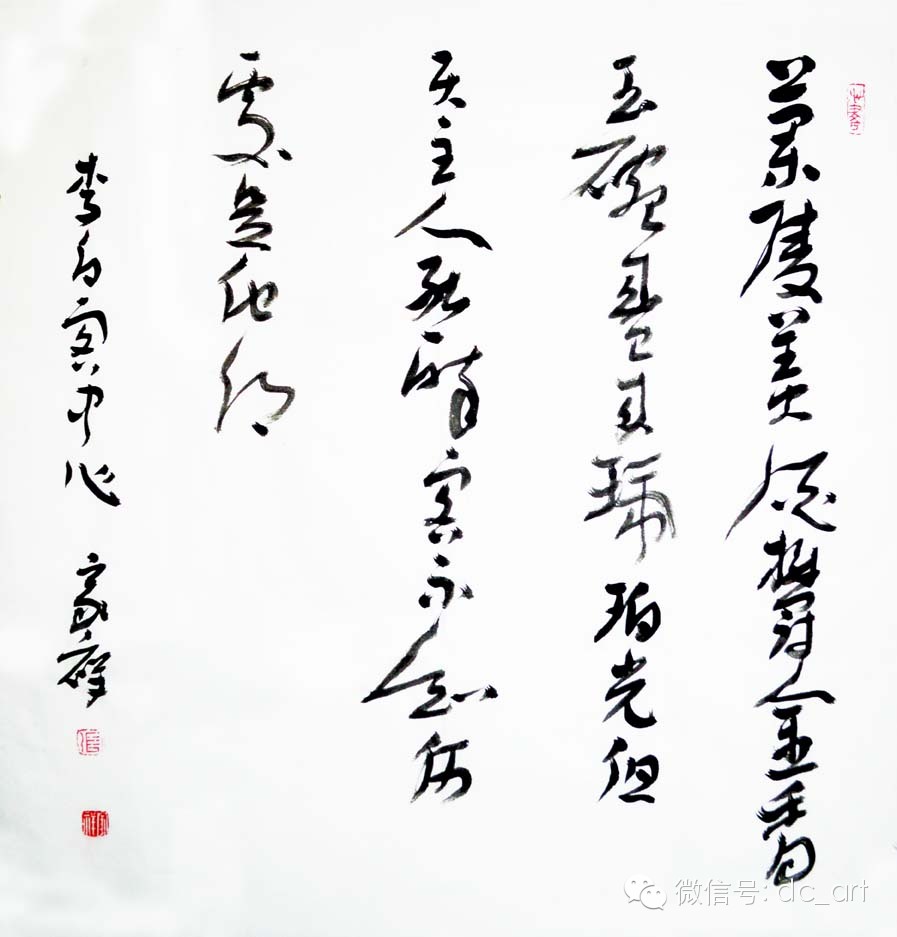 蘭陵美酒鬱金香
玉碗盛來琥珀光但
使主人能醉客不知何
處是他鄉
李白客中作
微信号: dc_art